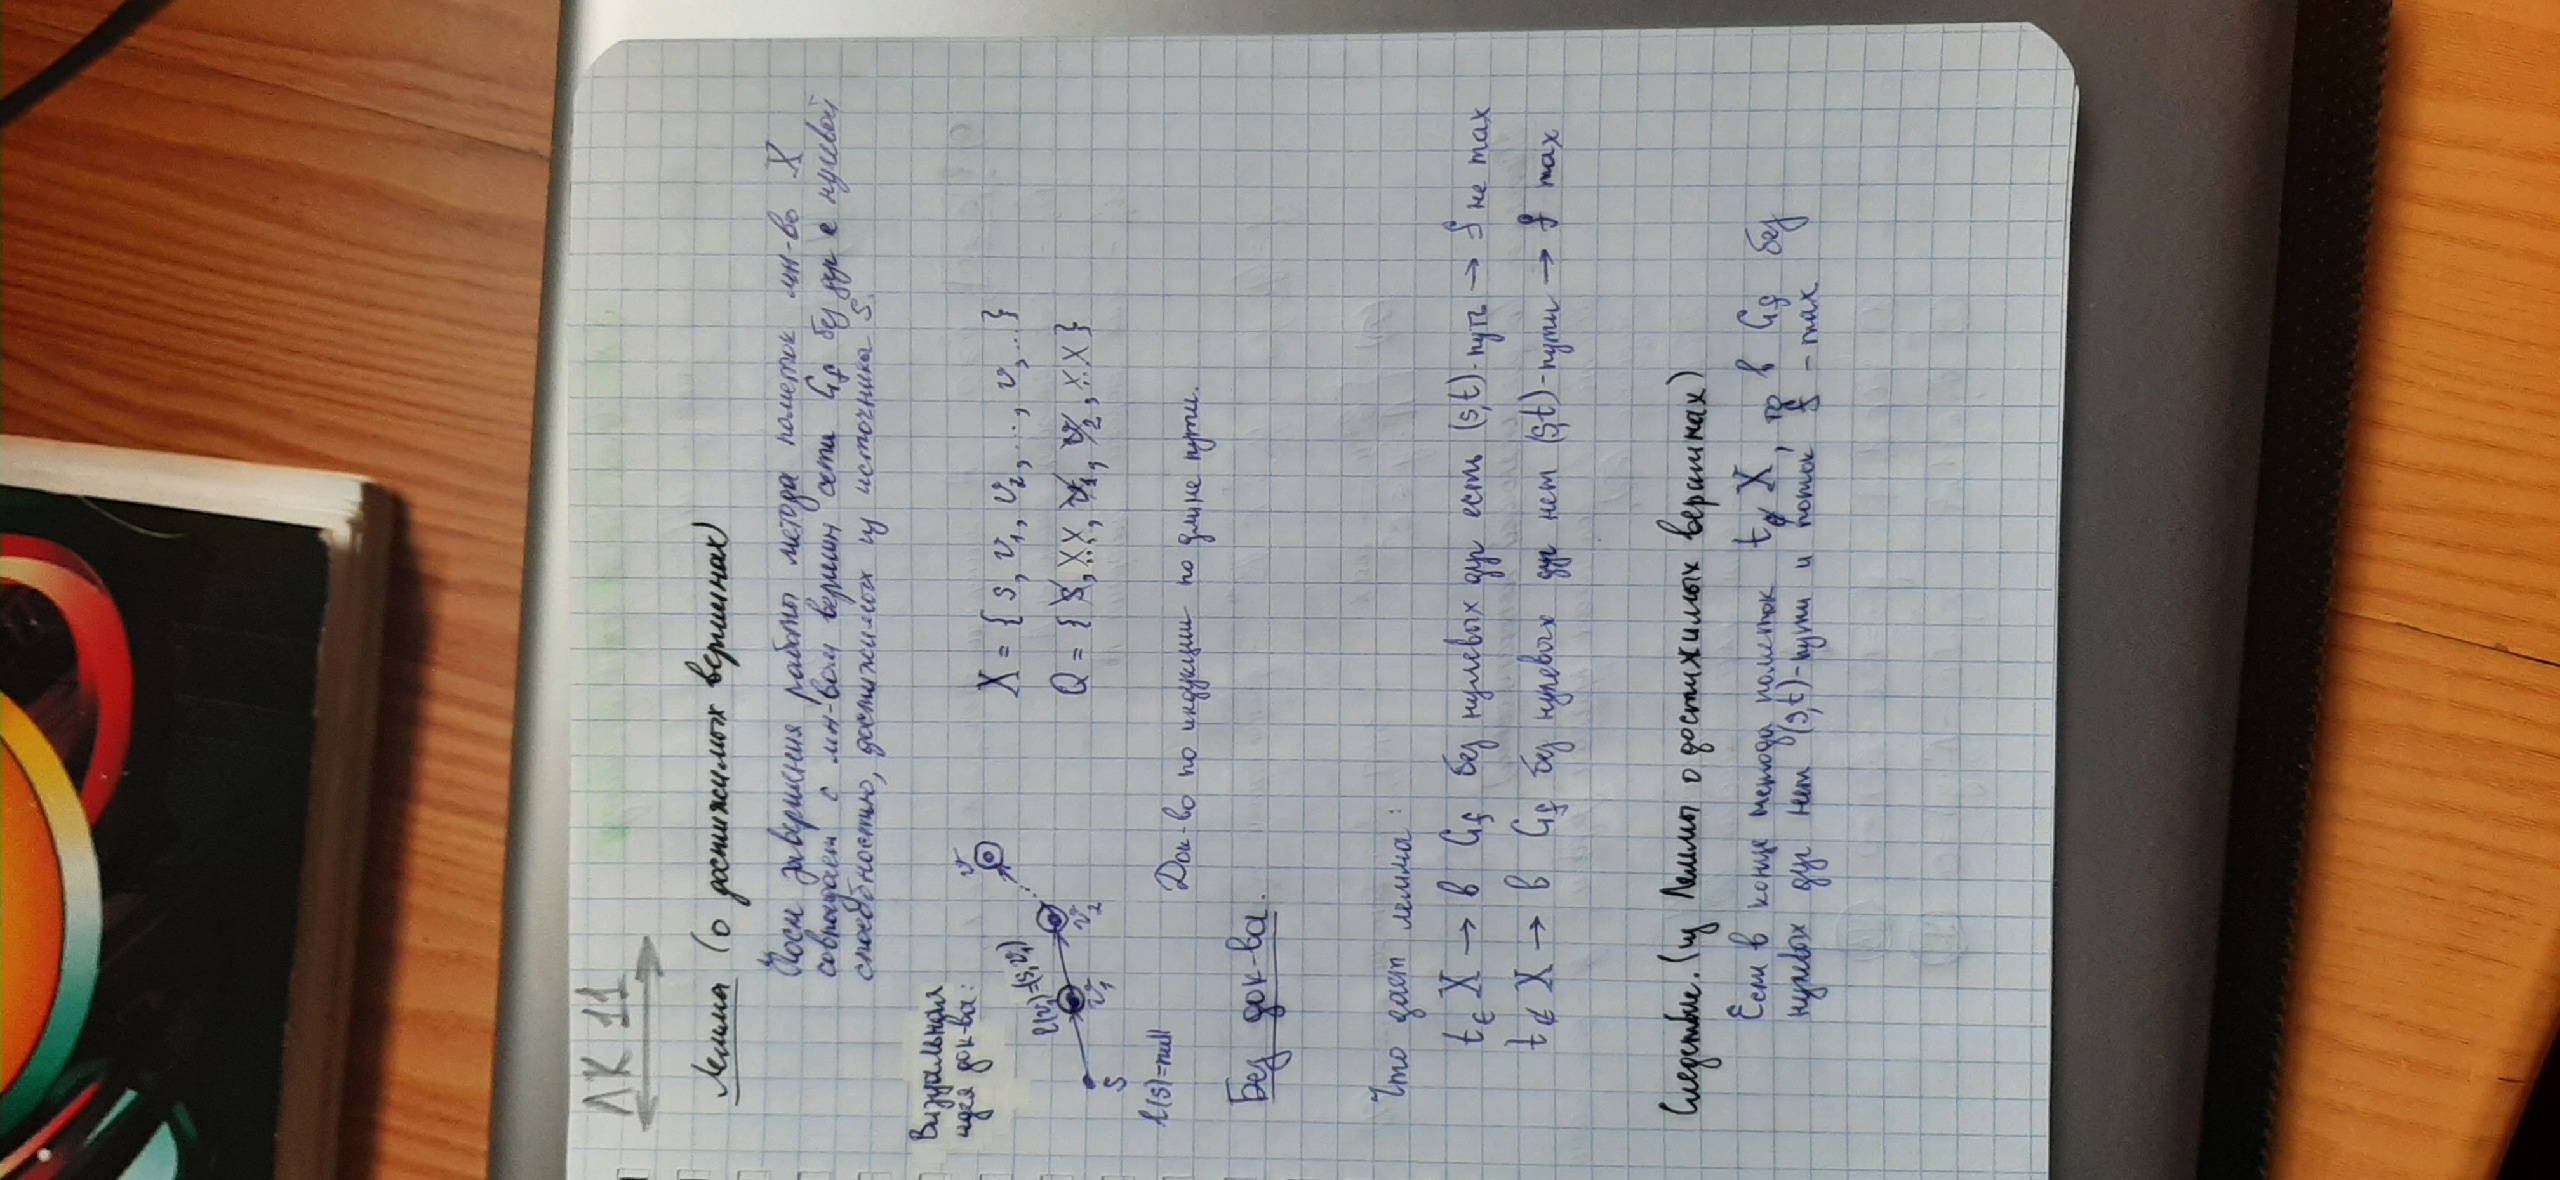 ЛК 11
Лемма (о достижимых вершинах)
После завершения работы метода пометок мн-во X
совпадает с мн-вом вершин сети Gf без дуг с нулевой
способностью, достижимых из источника s.
Визуальная
идея док-ва:
v
l(v₁)=(s,v₁)
v₁
v₂
s
l(s)=null
X = { s, v₁, v₂, ..., v, .. }
Q = { s, .., v₁, v₂, .. }
Док-во по индукции по длине пути.
Без док-ва.
Что даст лемма:
t ∈ X → в Gf без нулевых дуг есть (s,t)-путь → f не max
t ∉ X → в Gf без нулевых дуг нет (s,t)-пути → f max
Следствие. (из Леммы о достижимых вершинах)
Если в конце метода пометок t ∉ X, то в Gf без
нулевых дуг нет (s,t)-пути и поток f - max